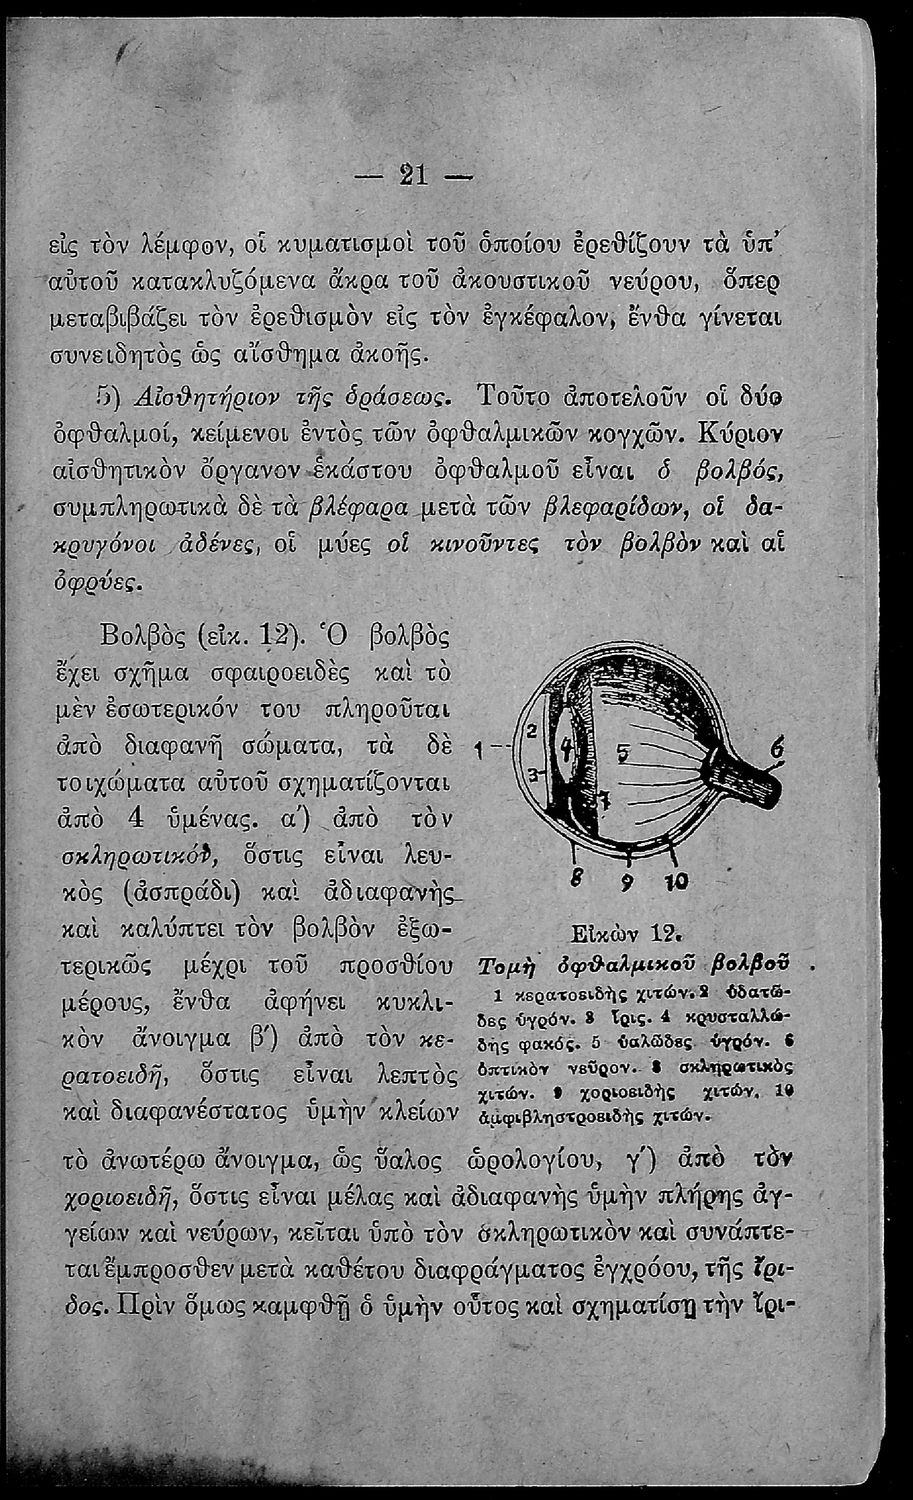 — 21 —
εἰς τὸν λέμφον, οἱ κυματισμοὶ τοῦ ὁποίου ἐρεθίζουν τὰ ὑπ’
αὐτοῦ κατακλυζόμενα ἄκρα τοῦ ἀκουστικοῦ νεύρου, ὅπερ
μεταβιβάζει τὸν ἐρεθισμὸν εἰς τὸν ἐγκέφαλον, ἔνθα γίνεται
συνειδητὸς ὡς αἴσθημα ἀκοῆς.
5) Αἰσθητήριον τῆς ὁράσεως. Τοῦτο ἀποτελοῦν οἱ δύο
ὀφθαλμοί, κείμενοι ἐντὸς τῶν ὀφθαλμικῶν κογχῶν. Κύριον
αἰσθητικὸν ὄργανον ἑκάστου ὀφθαλμοῦ εἶναι ὁ βολβός,
συμπληρωτικὰ δὲ τὰ βλέφαρα μετὰ τῶν βλεφαρίδων, οἱ δα-
κρυγόνοι ἀδένες, οἱ μύες οἱ κινοῦντες τὸν βολβὸν καὶ αἱ
ὀφρύες.
Βολβὸς (εἰκ. 12). Ὁ βολβὸς
ἔχει σχῆμα σφαιροειδὲς καὶ τὸ
μὲν ἐσωτερικόν του πληροῦται
ἀπὸ διαφανῆ σώματα, τὰ δὲ
τοιχώματα αὐτοῦ σχηματίζονται
ἀπὸ 4 ὑμένας. α′) ἀπὸ τὸν
σκληρωτικόν, ὅστις εἶναι λευ-
κὸς (ἀσπράδι) καὶ ἀδιαφανὴς
καὶ καλύπτει τὸν βολβὸν ἐξω-
τερικῶς μέχρι τοῦ προσθίου
μέρους, ἔνθα ἀφήνει κυκλι-
κὸν ἄνοιγμα β′) ἀπὸ τὸν κε-
ρατοειδῆ, ὅστις εἶναι λεπτὸς
καὶ διαφανέστατος ὑμὴν κλείων
1
2
3
4
5
6
7
8 9 10
Εἰκὼν 12.
Τομὴ ὀφθαλμικοῦ βολβοῦ
1 κερατοειδὴς χιτών. 2 ὑδατῶ-
δες ὑγρόν. 3 ἶρις. 4 κρυσταλλώ-
δης φακός. 5 ὑαλῶδες ὑγρόν. 6
ὀπτικὸν νεῦρον. 8 σκληρωτικὸς
χιτών. 9 χοριοειδὴς χιτών, 10
ἀμφιβληστροειδὴς χιτών.
τὸ ἀνωτέρω ἄνοιγμα, ὡς ὕαλος ὡρολογίου, γ′) ἀπὸ τὸν
χοριοειδῆ, ὅστις εἶναι μέλας καὶ ἀδιαφανὴς ὑμὴν πλήρης ἀγ-
γείων καὶ νεύρων, κεῖται ὑπὸ τὸν σκληρωτικὸν καὶ συνάπτε-
ται ἔμπροσθεν μετὰ καθέτου διαφράγματος ἐγχρόου, τῆς ἴρι-
δος. Πρὶν ὅμως καμφθῇ ὁ ὑμὴν οὗτος καὶ σχηματίσῃ τὴν ἴρι-